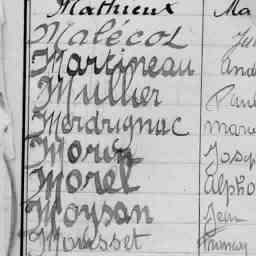 Mathieux Ma
Malécot Ju
Martineau And
Mullier Paul
Merdrignac Mar
Morin Josep
Morel Alpho
Moysan Jean
Mousset